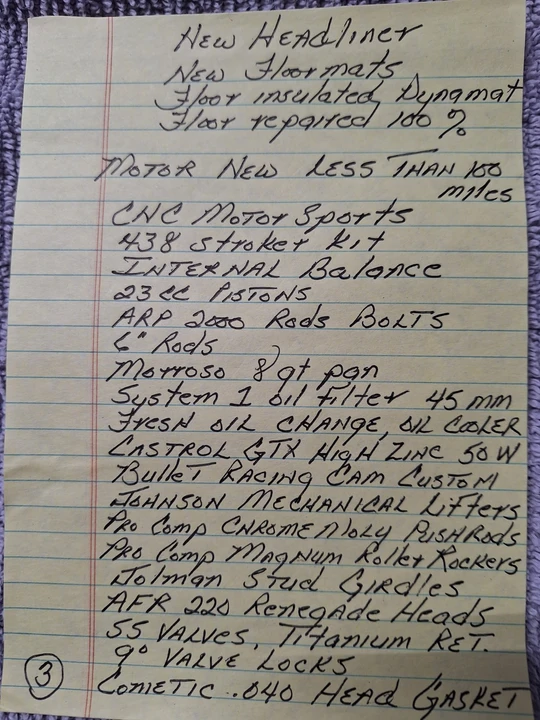 New Headliner
New Floormats
Floor insulated, Dynamat
Floor repaired 100 %
MOTOR NEW LESS THAN 100
miles
CNC Motor Sports
438 stroker Kit
INTERNAL Balance
23 CC PISTONS
ARP 2000 Rods BOLTS
6" Rods
Morroso 8 qt pan
System 1 oil Filter 45 mm
FRESH OIL CHANGE, OIL COOLER
CASTROL GTX HIGH ZINC 50 W
BulleT RACING CAM CUSTOM
JOHNSON MECHANICAL Lifters
PRO COMP CHROME Moly PUSHRods
PRO COMP MAGNUM Roller Rockers
Jolman Stud GIRdles
AFR 220 Renegade Heads
SS VALVES, TITANIUM RET.
9° VALVE LOCKS
3
COMETIC .040 HEAD GASKET